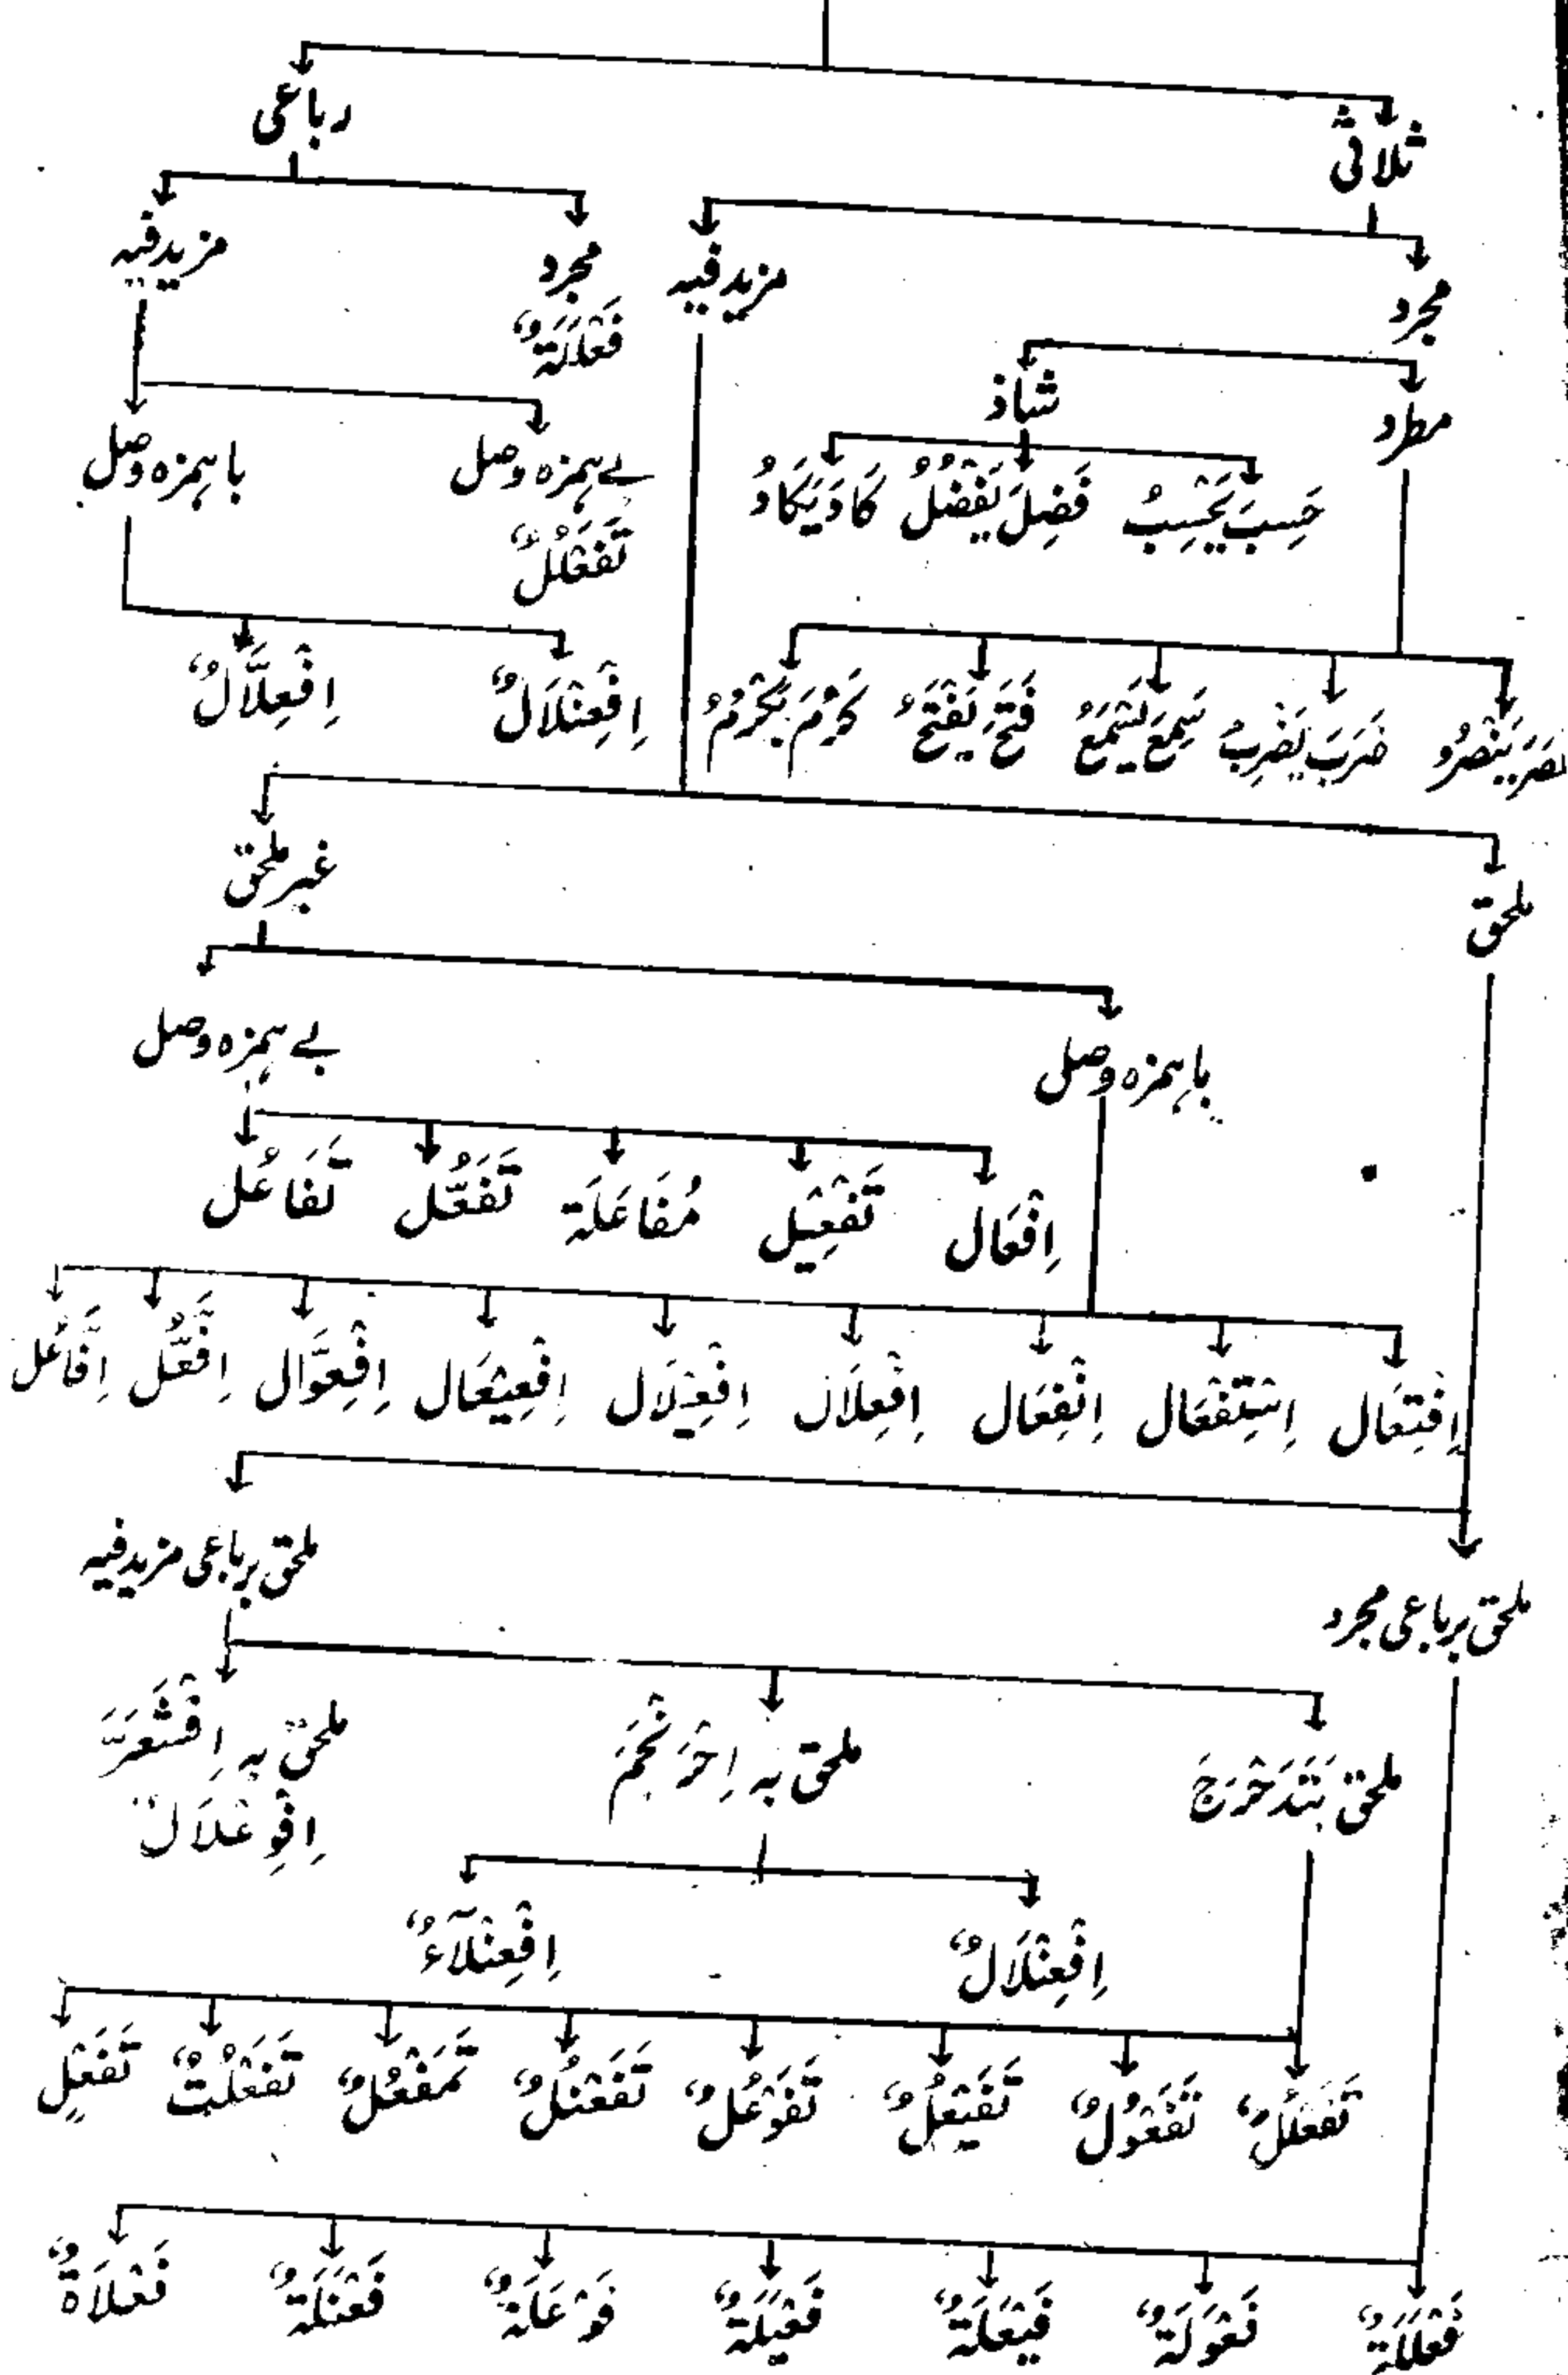 ثلاثی رباعی
مجرد مزید فیہ مجرد مزید فیہ
فَعْلَلَةٌ
مطرد شاذ بے ہمزہ وصل باہمزہ وصل
حَسِبَ یَحْسِبُ فَضِلَ یَفْضُلُ کَادَ یَکَادُ تَفَعْلُلٌ
نَصَرَ یَنْصُرُ ضَرَبَ یَضْرِبُ سَمِعَ یَسْمَعُ فَتَحَ یَفْتَحُ کَرُمَ یَکْرُمُ اِفْعِنْلَالٌ اِفْعِلَّالٌ
ملحق غیر ملحق
باہمزہ وصل بے ہمزہ وصل
اِفْعَال تَفْعِیْل مُفَاعَلَة تَفَعُّل تَفَاعُل
اِفْتِعَال اِسْتِفْعَال اِنْفِعَال اِفْعِلَال اِفْعِیْلَال اِفْعِیْعَال اِفْعِوَّال اِفَّعُّل اِفَّاعُل
ملحق برباعی مجرد ملحق برباعی مزید فیہ
ملحق بَتَدَحْرَجَ ملحق بہ اِحْرَنْجَمَ ملحق بہ اِقْشَعَرَّ
اِفْوِعْلَالٌ
اِفْعِنْلَالٌ اِفْعِنْلَآءٌ
تَفَعْلُلٌ تَفَعْوُلٌ تَفَیْعُلٌ تَفَوْعُلٌ تَفَعْنُلٌ تَمَفْعُلٌ تَفَعْلُتٌ تَفَعْلٍ
فَعْلَلَةٌ فَعْوَلَةٌ فَیْعَلَةٌ فَعْیَلَةٌ فَوْعَلَةٌ فَعْنَلَةٌ فَعْلَاةٌ